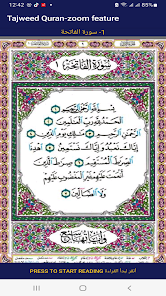 12:42
Tajweed Quran-zoom feature
١- سورة الفاتحة
سُورَةُ الْفَاتِحَةِ ١
بِسْمِ اللَّهِ الرَّحْمَٰنِ الرَّحِيمِ ١
الْحَمْدُ لِلَّهِ رَبِّ الْعَالَمِينَ ٢
الرَّحْمَٰنِ الرَّحِيمِ ٣ مَالِكِ يَوْمِ الدِّينِ ٤
إِيَّاكَ نَعْبُدُ وَإِيَّاكَ نَسْتَعِينُ ٥ اهْدِنَا
الصِّرَاطَ الْمُسْتَقِيمَ ٦ صِرَاطَ الَّذِينَ
أَنْعَمْتَ عَلَيْهِمْ غَيْرِ الْمَغْضُوبِ عَلَيْهِمْ
وَلَا الضَّالِّينَ ٧
وَآيَاتُهَا سَبْعٌ
PRESS TO START READING أنقر لبدأ القراءة